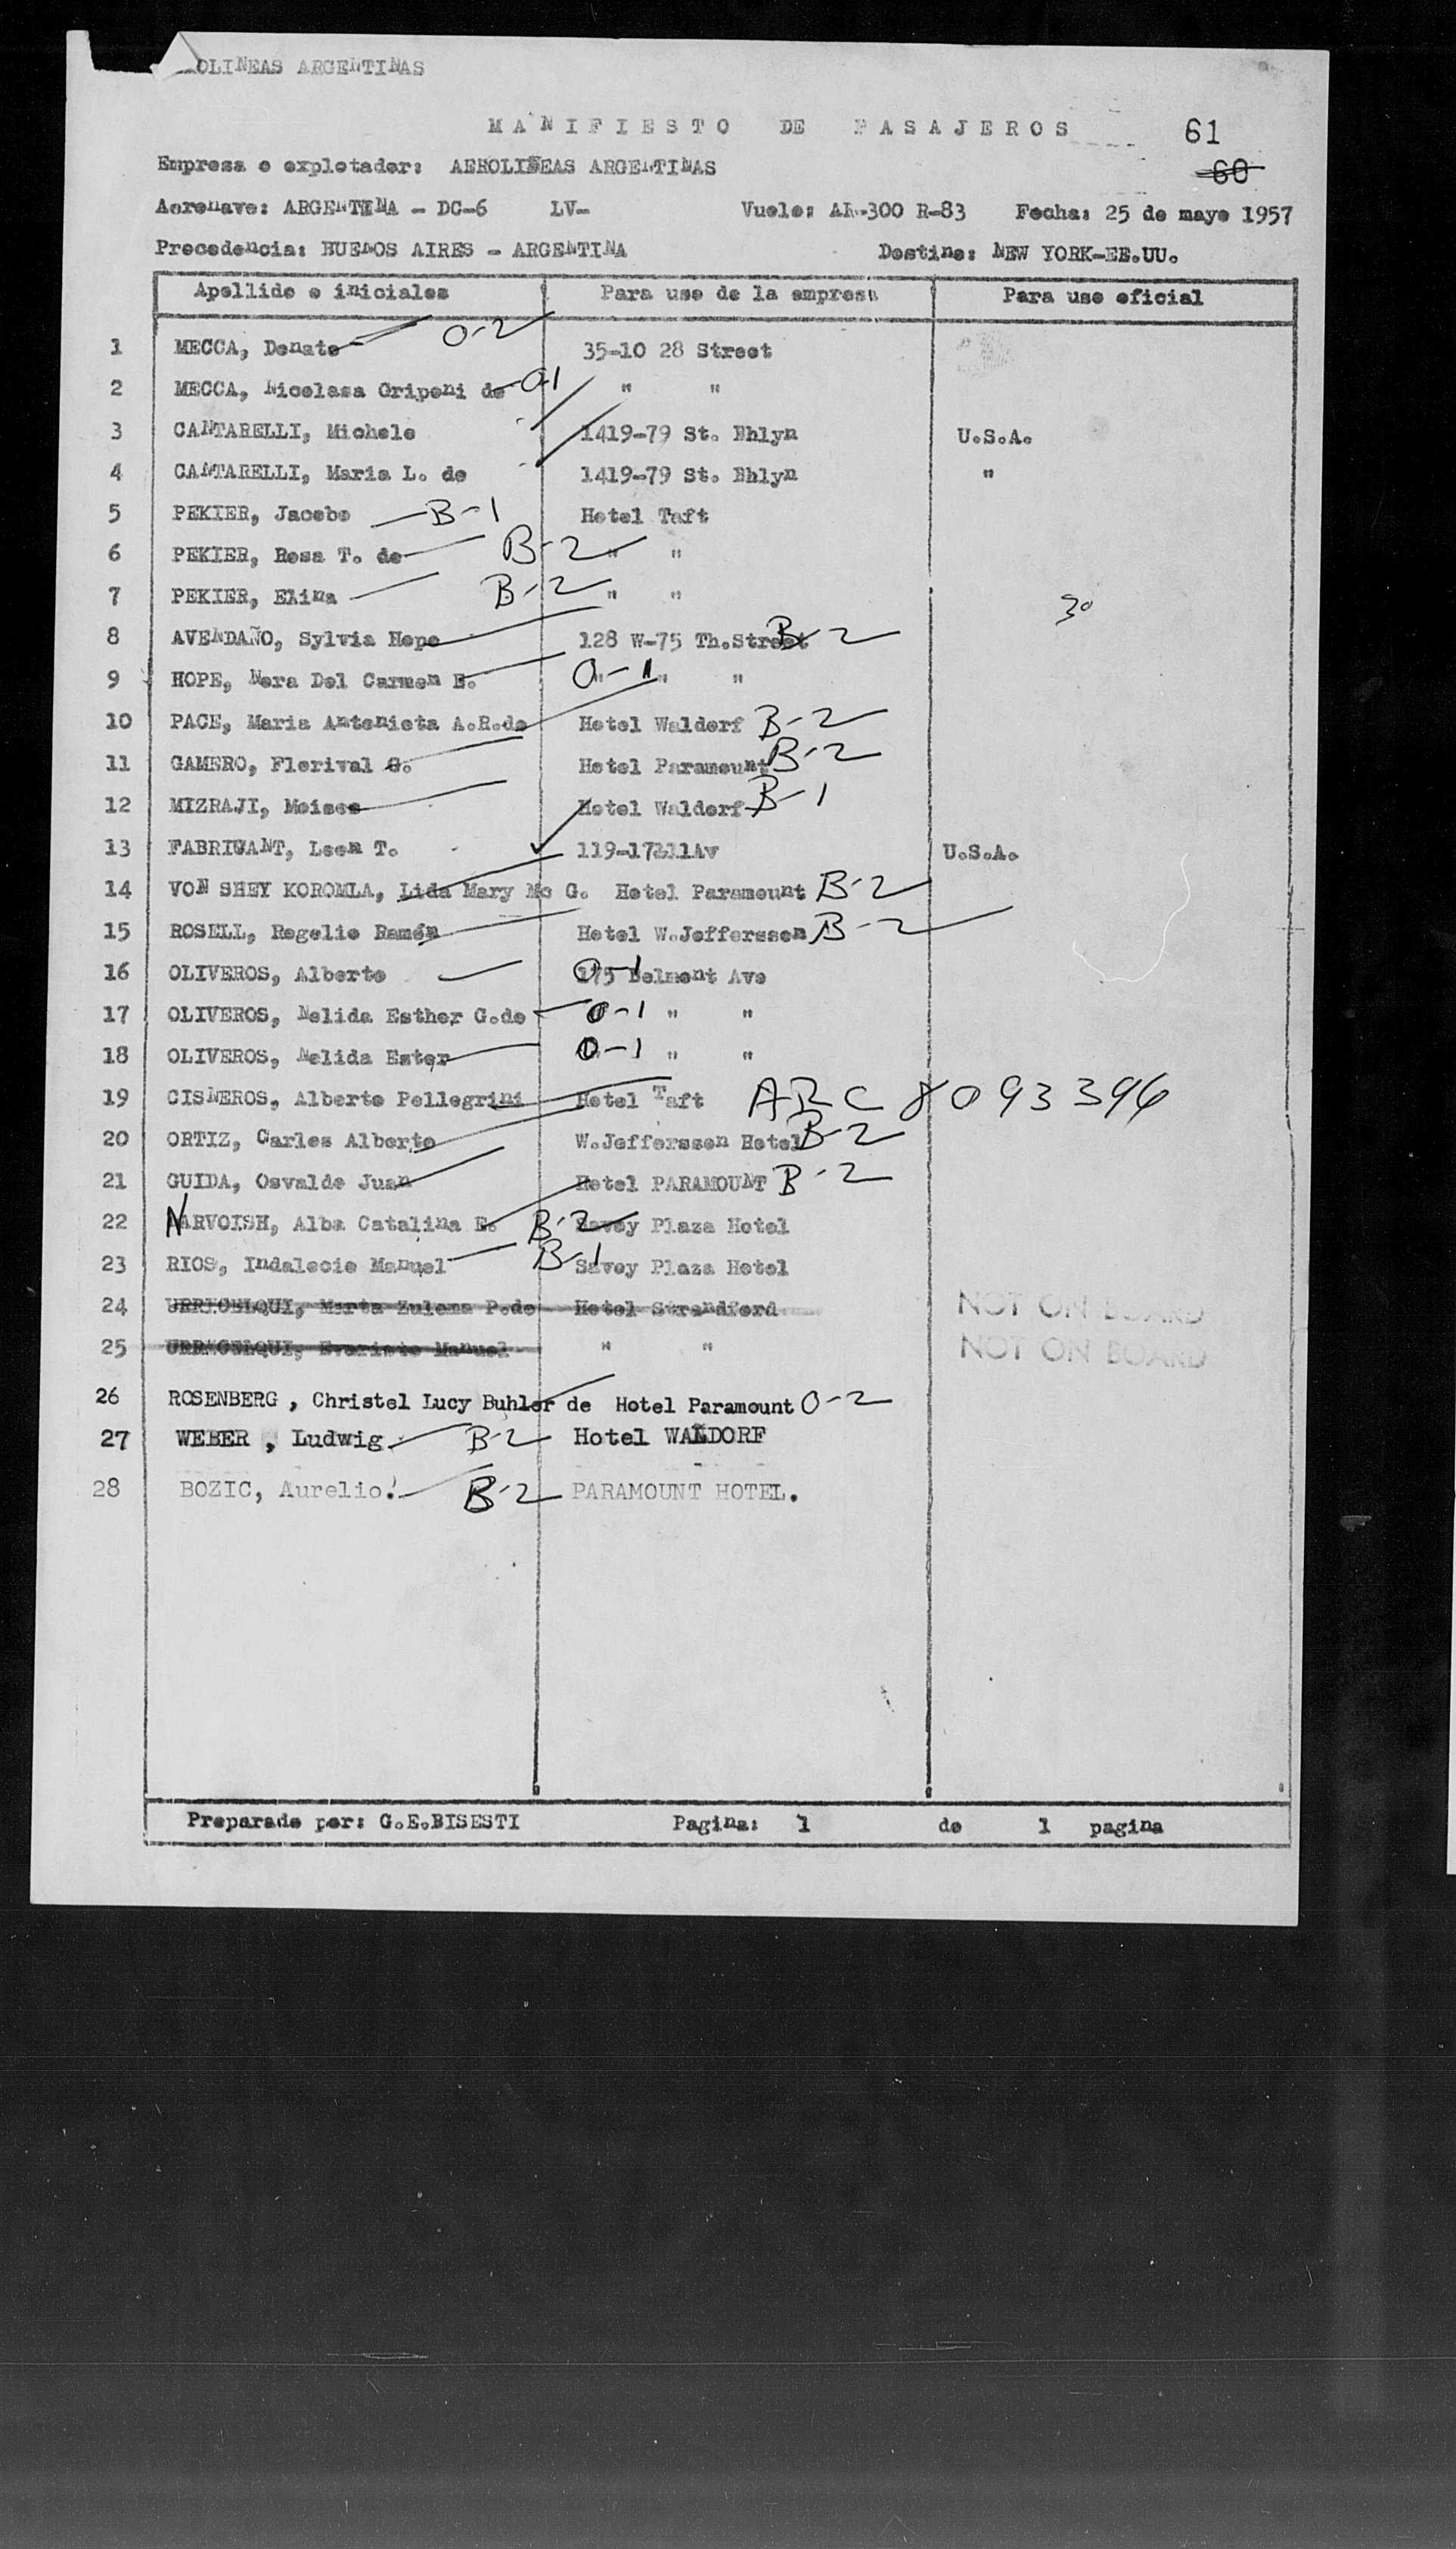 OLINEAS ARGENTINAS
MANIFIESTO DE PASAJEROS 61
60
Empresa o explotador: AEROLINEAS ARGENTINAS
Aeronave: ARGENTINA - DC-6 LV- Vuelo: AR-300 R-83 Fecha: 25 de mayo 1957
Procedencia: BUENOS AIRES - ARGENTINA Destino: NEW YORK-EE.UU.
Apellido e iniciales Para uso de la empresa Para uso oficial
1 MECCA, Donato O-2 35-10 28 Street
2 MECCA, Nicolasa Griponi de O-1 " "
3 CANTARELLI, Michele 1419-79 St. Bhlyn U.S.A.
4 CANTARELLI, Maria L. de 1419-79 St. Bhlyn "
5 PEKIER, Jacobo B-1 Hotel Taft
6 PEKIER, Rosa T. de B-2 " "
7 PEKIER, Elina B-2 " "
30
8 AVENDAÑO, Sylvia Hope 128 W-75 Th.Street B-2
9 HOPE, Nora Del Carmen E. O-1 " " "
10 PACE, Maria Antonieta A.R.de Hotel Waldorf B-2
11 GAMERO, Florival G. Hotel Paramount B-2
12 MIZRAJI, Moises Hotel Waldorf B-1
13 FABRICANT, Leon T. U.S.A.
14 VON SHEY KOROMLA, Lida Mary Mc G. Hotel Paramount B-2
15 ROSELL, Rogelio Ramón Hotel W.Jefferssen B-2
16 OLIVEROS, Alberto O-1 175 Belmont Ave
17 OLIVEROS, Nelida Esther G.de O-1 " "
18 OLIVEROS, Nelida Ester O-1 " "
19 CISNEROS, Alberto Pellegrini Hotel Taft ARC 8093396
20 ORTIZ, Carlos Alberto W.Jefferssen Hotel B-2
21 GUIDA, Osvaldo Juan Hotel PARAMOUNT B-2
22 NARVOISH, Alba Catalina E. B-2 Savoy Plaza Hotel
23 RIOS, Indalecio Manuel B-1 Savoy Plaza Hotel
24 Marta Zulema P.de Hotel Strandford NOT ON BOARD
25 Evaristo Manuel " " NOT ON BOARD
26 ROSENBERG , Christel Lucy Buhler de Hotel Paramount O-2
27 WEBER , Ludwig B-2 Hotel WALDORF
28 BOZIC, Aurelio. B-2 PARAMOUNT HOTEL.
Preparado por: G.E.BISESTI Pagina: 1 de 1 pagina